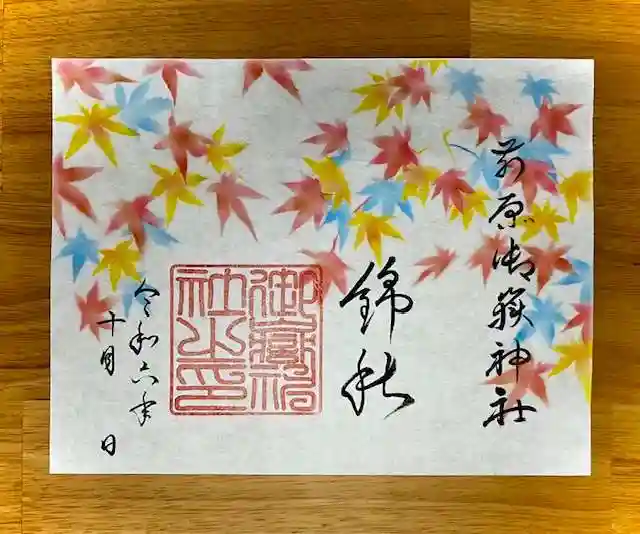 前原御嶽神社
錦秋
御嶽神
社之印
令和六年
十月 日